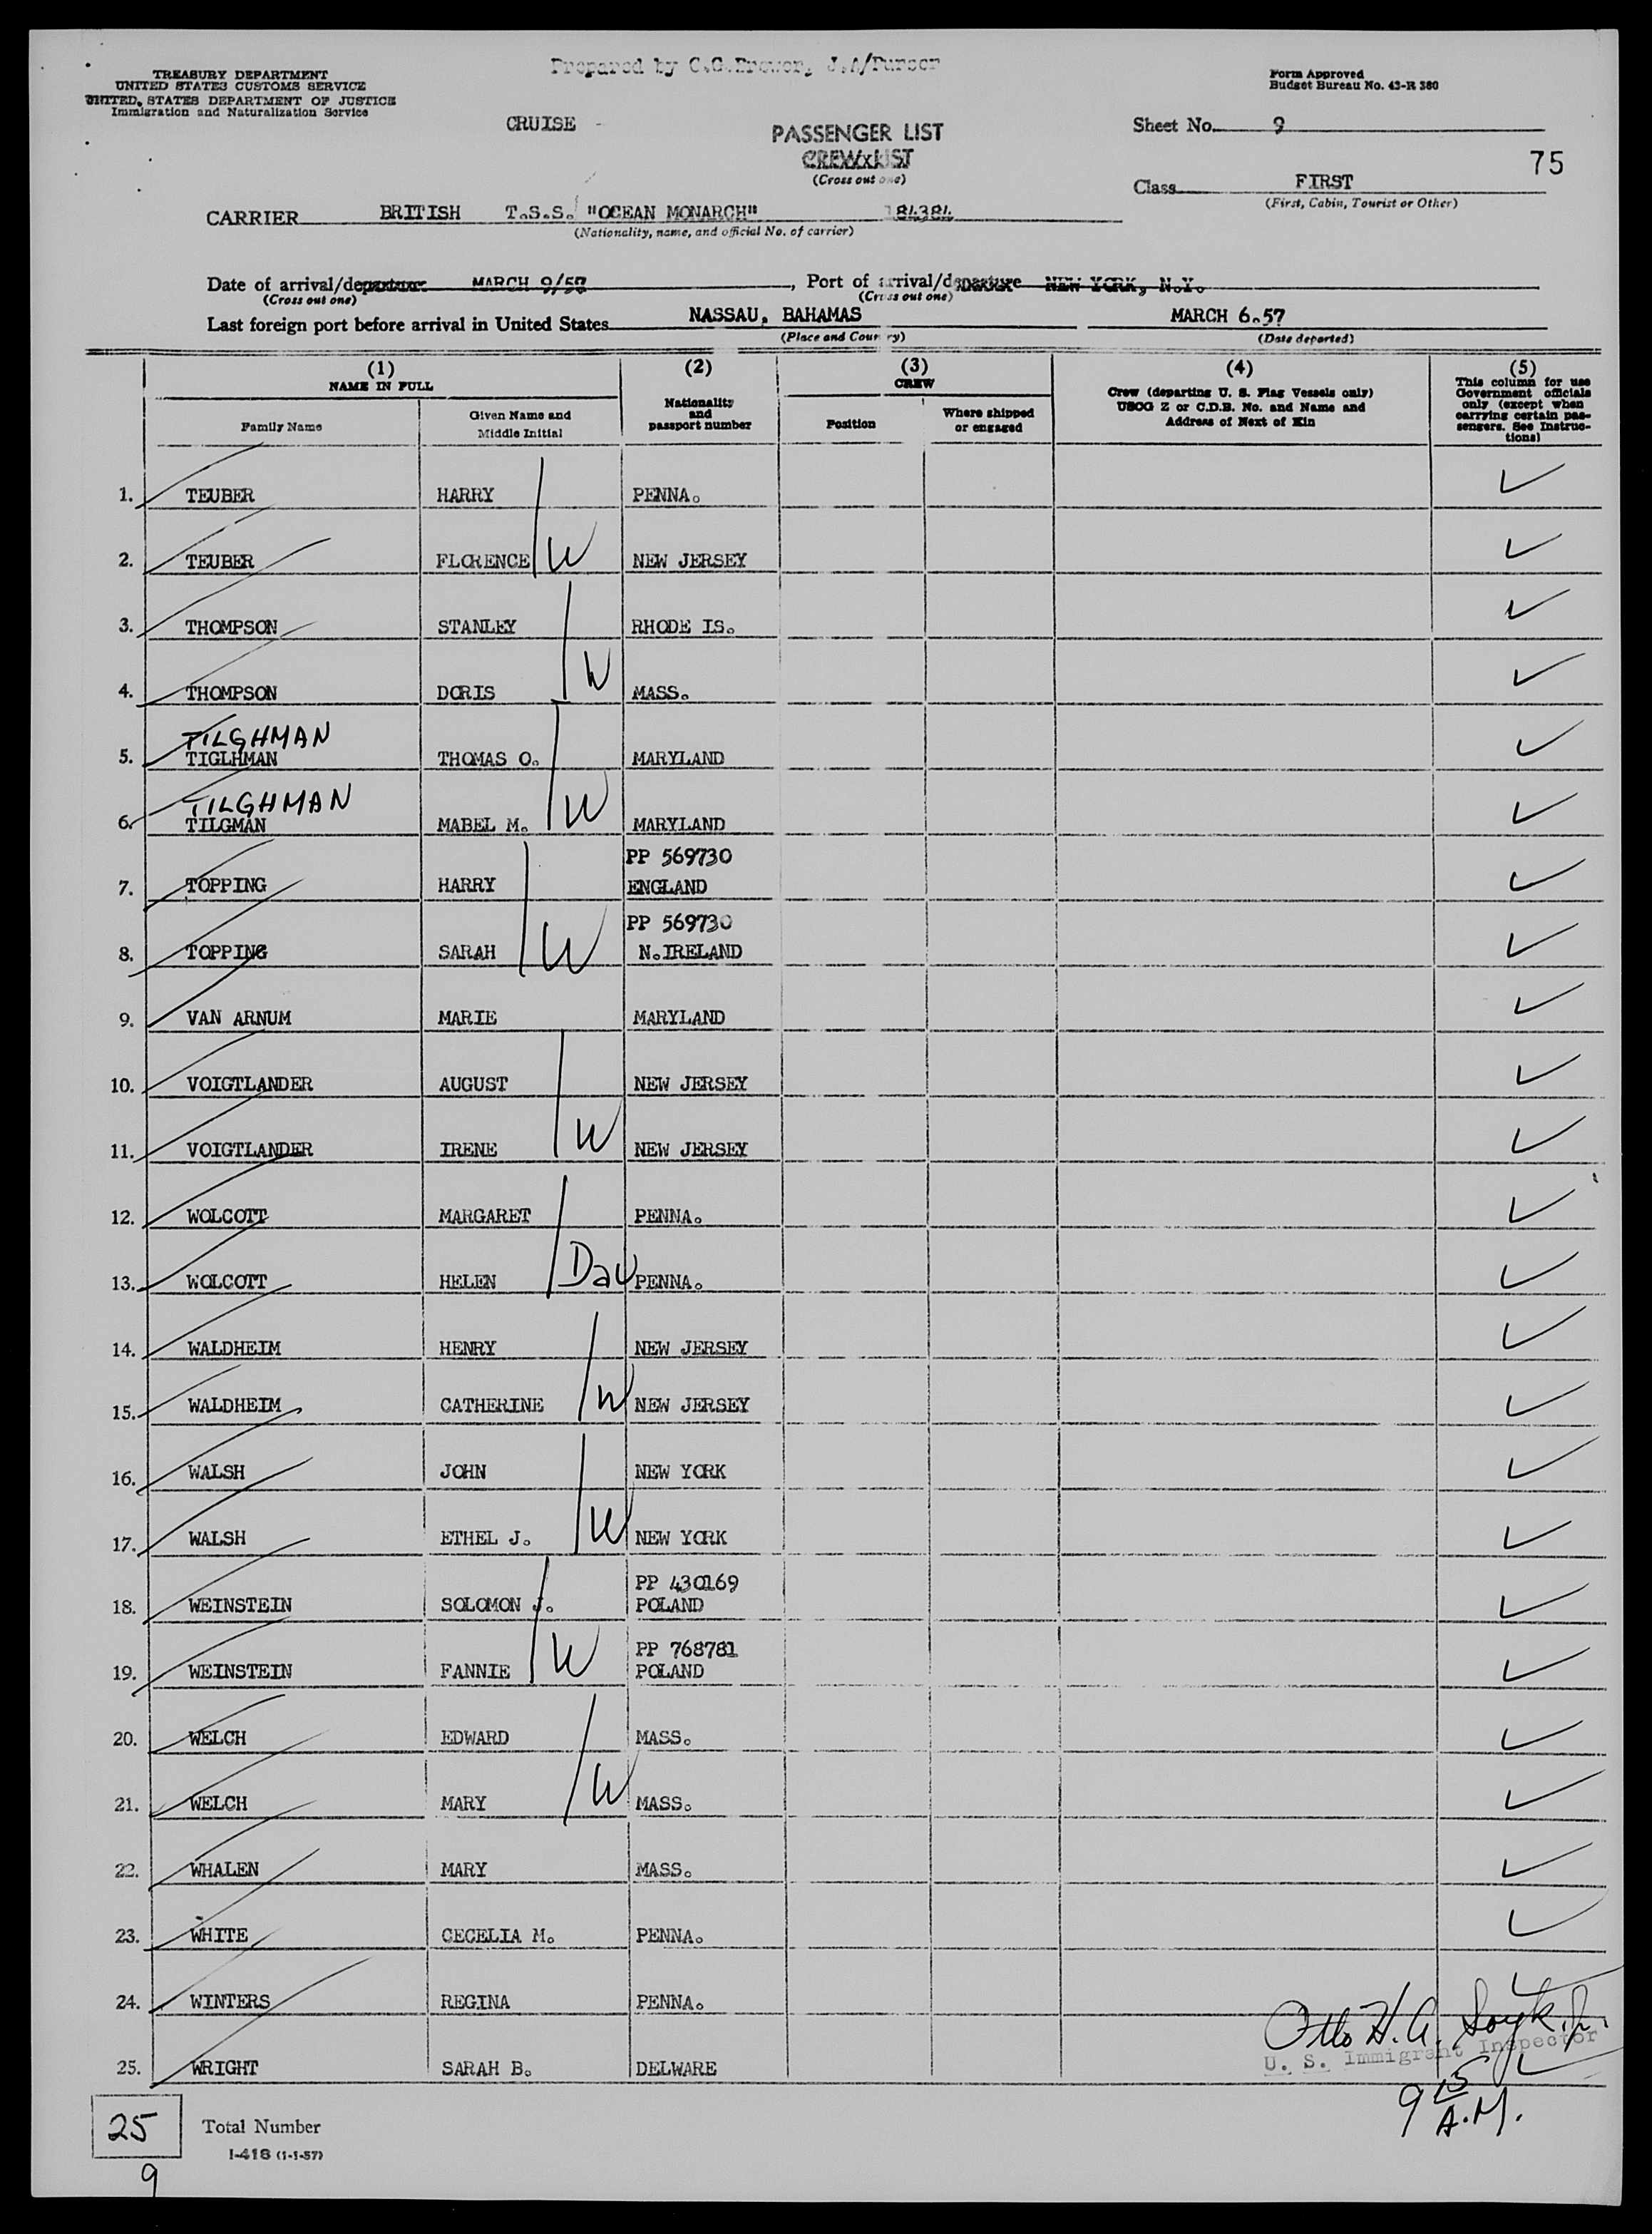 Prepared by C.G.Brewer, J.A/Purser
TREASURY DEPARTMENT
UNITED STATES CUSTOMS SERVICE
UNITED STATES DEPARTMENT OF JUSTICE
Immigration and Naturalization Service
Form Approved
Budget Bureau No. 43-R 380
CRUISE -
PASSENGER LIST
CREW LIST
(Cross out one)
Sheet No. 9
75
Class FIRST
(First, Cabin, Tourist or Other)
CARRIER BRITISH T.S.S. "OCEAN MONARCH" 184384
(Nationality, name, and official No. of carrier)
Date of arrival/departure MARCH 9/57, Port of arrival/departure NEW YORK, N.Y.
(Cross out one) (Cross out one)
Last foreign port before arrival in United States NASSAU, BAHAMAS MARCH 6.57
(Place and Country) (Date departed)
(1) (2) (3) (4) (5)
NAME IN FULL
Family Name
Given Name and Middle Initial
Nationality and passport number
CREW
Position
Where shipped or engaged
Crew (departing U. S. Flag Vessels only)
USCG Z or C.D.B. No. and Name and
Address of Next of Kin
This column for use
Government officials
only (except when
carrying certain pas-
sengers. See Instruc-
tions)
1. TEUBER HARRY PENNA.
2. TEUBER FLORENCE W NEW JERSEY
3. THOMPSON STANLEY RHODE IS.
4. THOMPSON DORIS W MASS.
TILGHMAN
5. TIGLHMAN THOMAS O. MARYLAND
TILGHMAN
6. TILGMAN MABEL M. W MARYLAND
PP 569730
7. TOPPING HARRY ENGLAND
PP 569730
8. TOPPING SARAH W N.IRELAND
9. VAN ARNUM MARIE MARYLAND
10. VOIGTLANDER AUGUST NEW JERSEY
11. VOIGTLANDER IRENE W NEW JERSEY
12. WOLCOTT MARGARET PENNA.
13. WOLCOTT HELEN Dau PENNA.
14. WALDHEIM HENRY NEW JERSEY
15. WALDHEIM CATHERINE W NEW JERSEY
16. WALSH JOHN NEW YORK
17. WALSH ETHEL J. W NEW YORK
PP 430169
18. WEINSTEIN SOLOMON J. POLAND
PP 768781
19. WEINSTEIN FANNIE W POLAND
20. WELCH EDWARD MASS.
21. WELCH MARY W MASS.
22. WHALEN MARY MASS.
23. WHITE CECELIA M. PENNA.
24. WINTERS REGINA PENNA.
Otto H.A. Soyk, Jr.
U. S. Immigrant Inspector
25. WRIGHT SARAH B. DELWARE
9 15 A.M.
25 Total Number
I-418 (1-1-57)
9